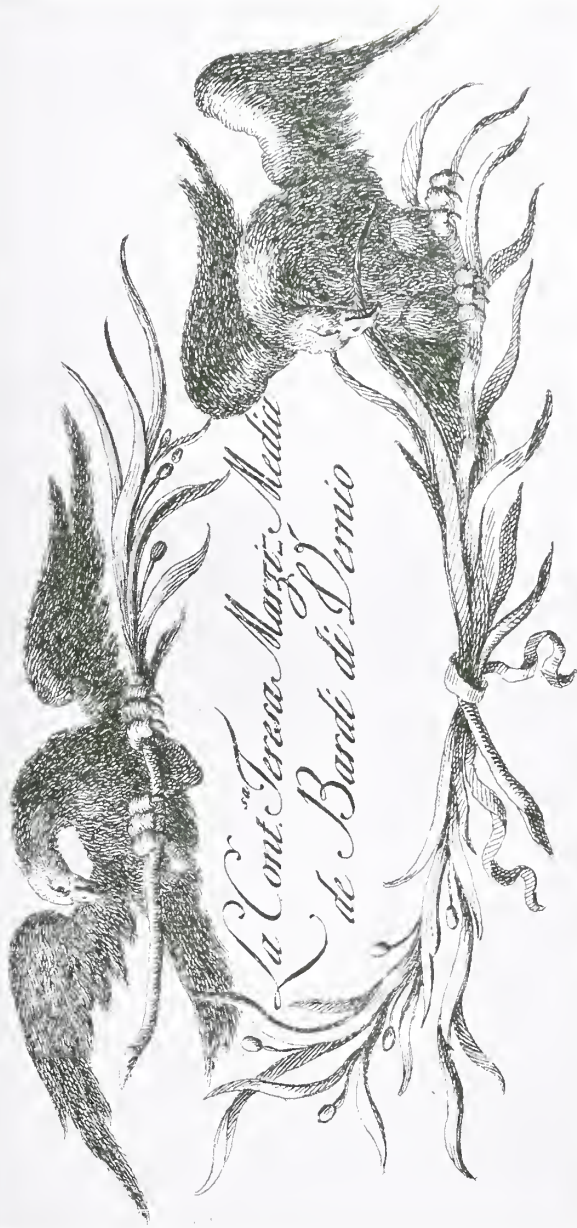 La Cont.sa Teresa Marzi-Medici
de Bardi di Vernio